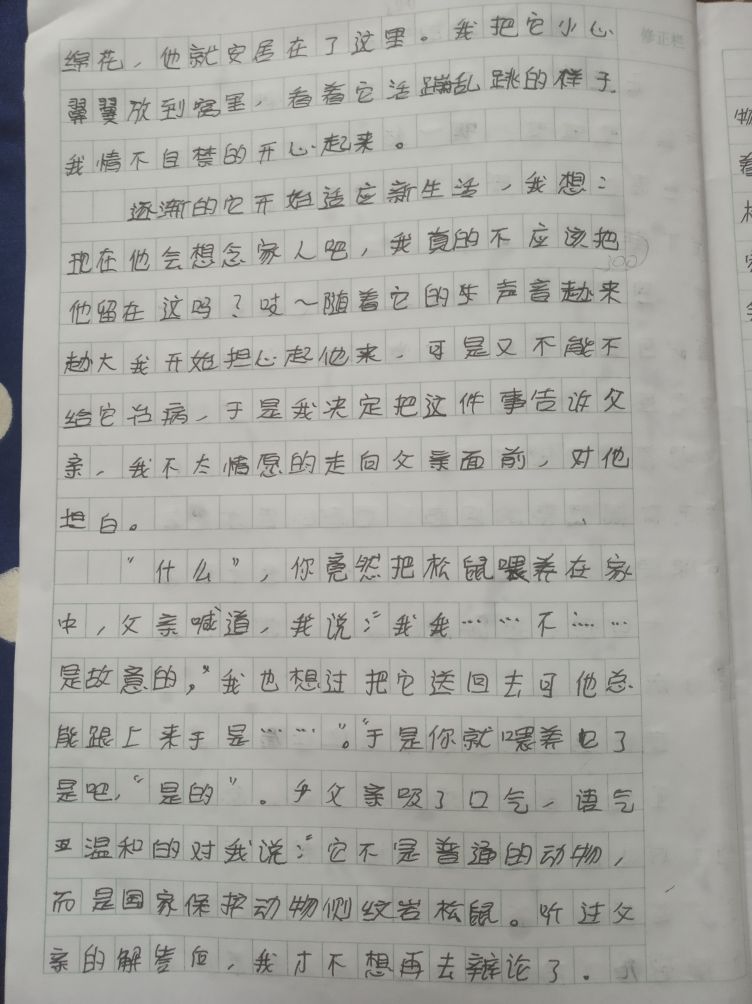 绵花，他就安居在了这里。我把它小心
修正栏
翼翼放到窝里，看着它活蹦乱跳的样子
我情不自禁的开心起来。
逐渐的它开始适应新生活，我想：
现在他会想念家人吧，我真的不应该把
300
他留在这吗？吱～随着它的生声音越来
越大我开始担心起他来，可是又不能不
给它治病，于是我决定把这件事告诉父
亲，我不太情愿的走向父亲面前，对他
坦白。
“什么”，你竟然把松鼠喂养在家
中，父亲喊道，我说：“我我……不……
是故意的，”我也想过把它送回去可他总
能跟上来于是……”。“于是你就喂养它了
是吧，“是的”。父亲吸了口气，语气
温和的对我说：“它不是普通的动物，
而是国家保护动物侧纹岩松鼠。听过父
亲的解答后，我才不想再去辩论了。